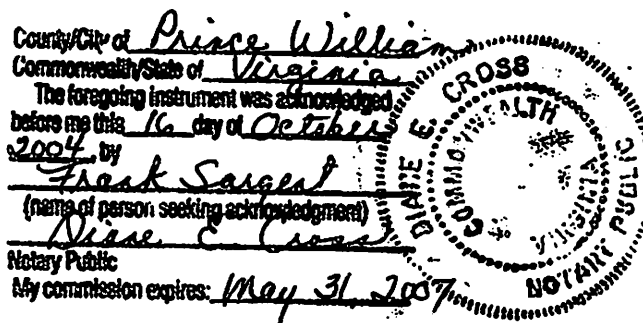 County/City of Prince William
Commonwealth/State of Virginia
The foregoing instrument was acknowledged
before me this 16 day of October
2004, by
Frank Sargent
(name of person seeking acknowledgment)
Diane E. Cross
Notary Public
My commission expires: May 31, 2007
DIANE E. CROSS
NOTARY PUBLIC
COMMONWEALTH
VIRGINIA